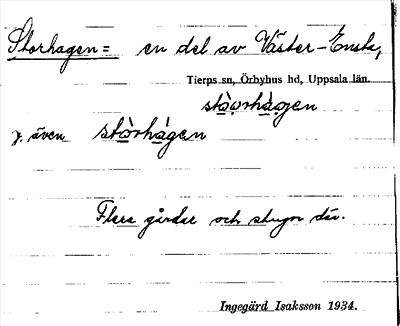 Storhagen = en del av Väster-Ensta,
Tierps sn, Örbyhus hd, Uppsala län.
stòo̤rhàgen
j. även stòrhàgen
Flera gårdar och stugor där.
Ingegärd Isaksson 1934.